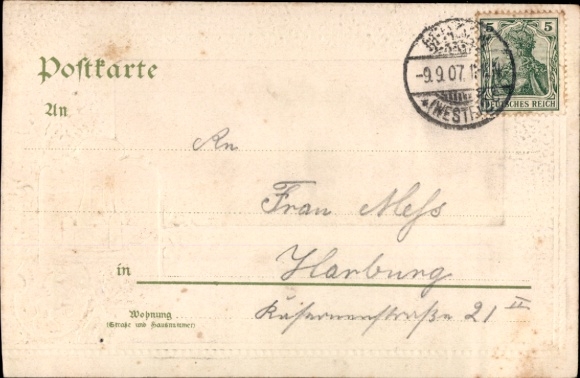 5 5
DEUTSCHES REICH
-9.9.07.
*(WESTF.)
Postkarte
An
An
Frau Mess
in Harburg
Wohnung
(Straße und Hausnummer)
Kasernenstraße 21 II